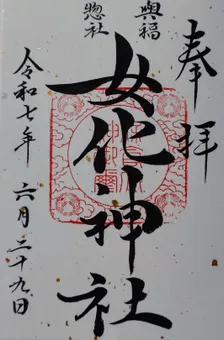 奉拝
興福
惣社
女化神社
令和七年 六月二十九日